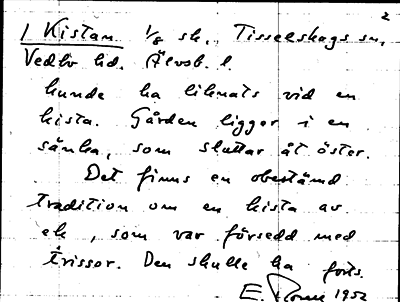 2
1 Kistan 1/8 sk., Tisselskogs sn,
Vedbo hd. Älvsb. l.
kunde ha liknats vid en
kista. Gården ligger i en
sänka, som sluttar åt öster.
Det finns en obestämd
tradition om en kista av
ek, som var försedd med
trissor. Den skulle ha forts.
E. 1952